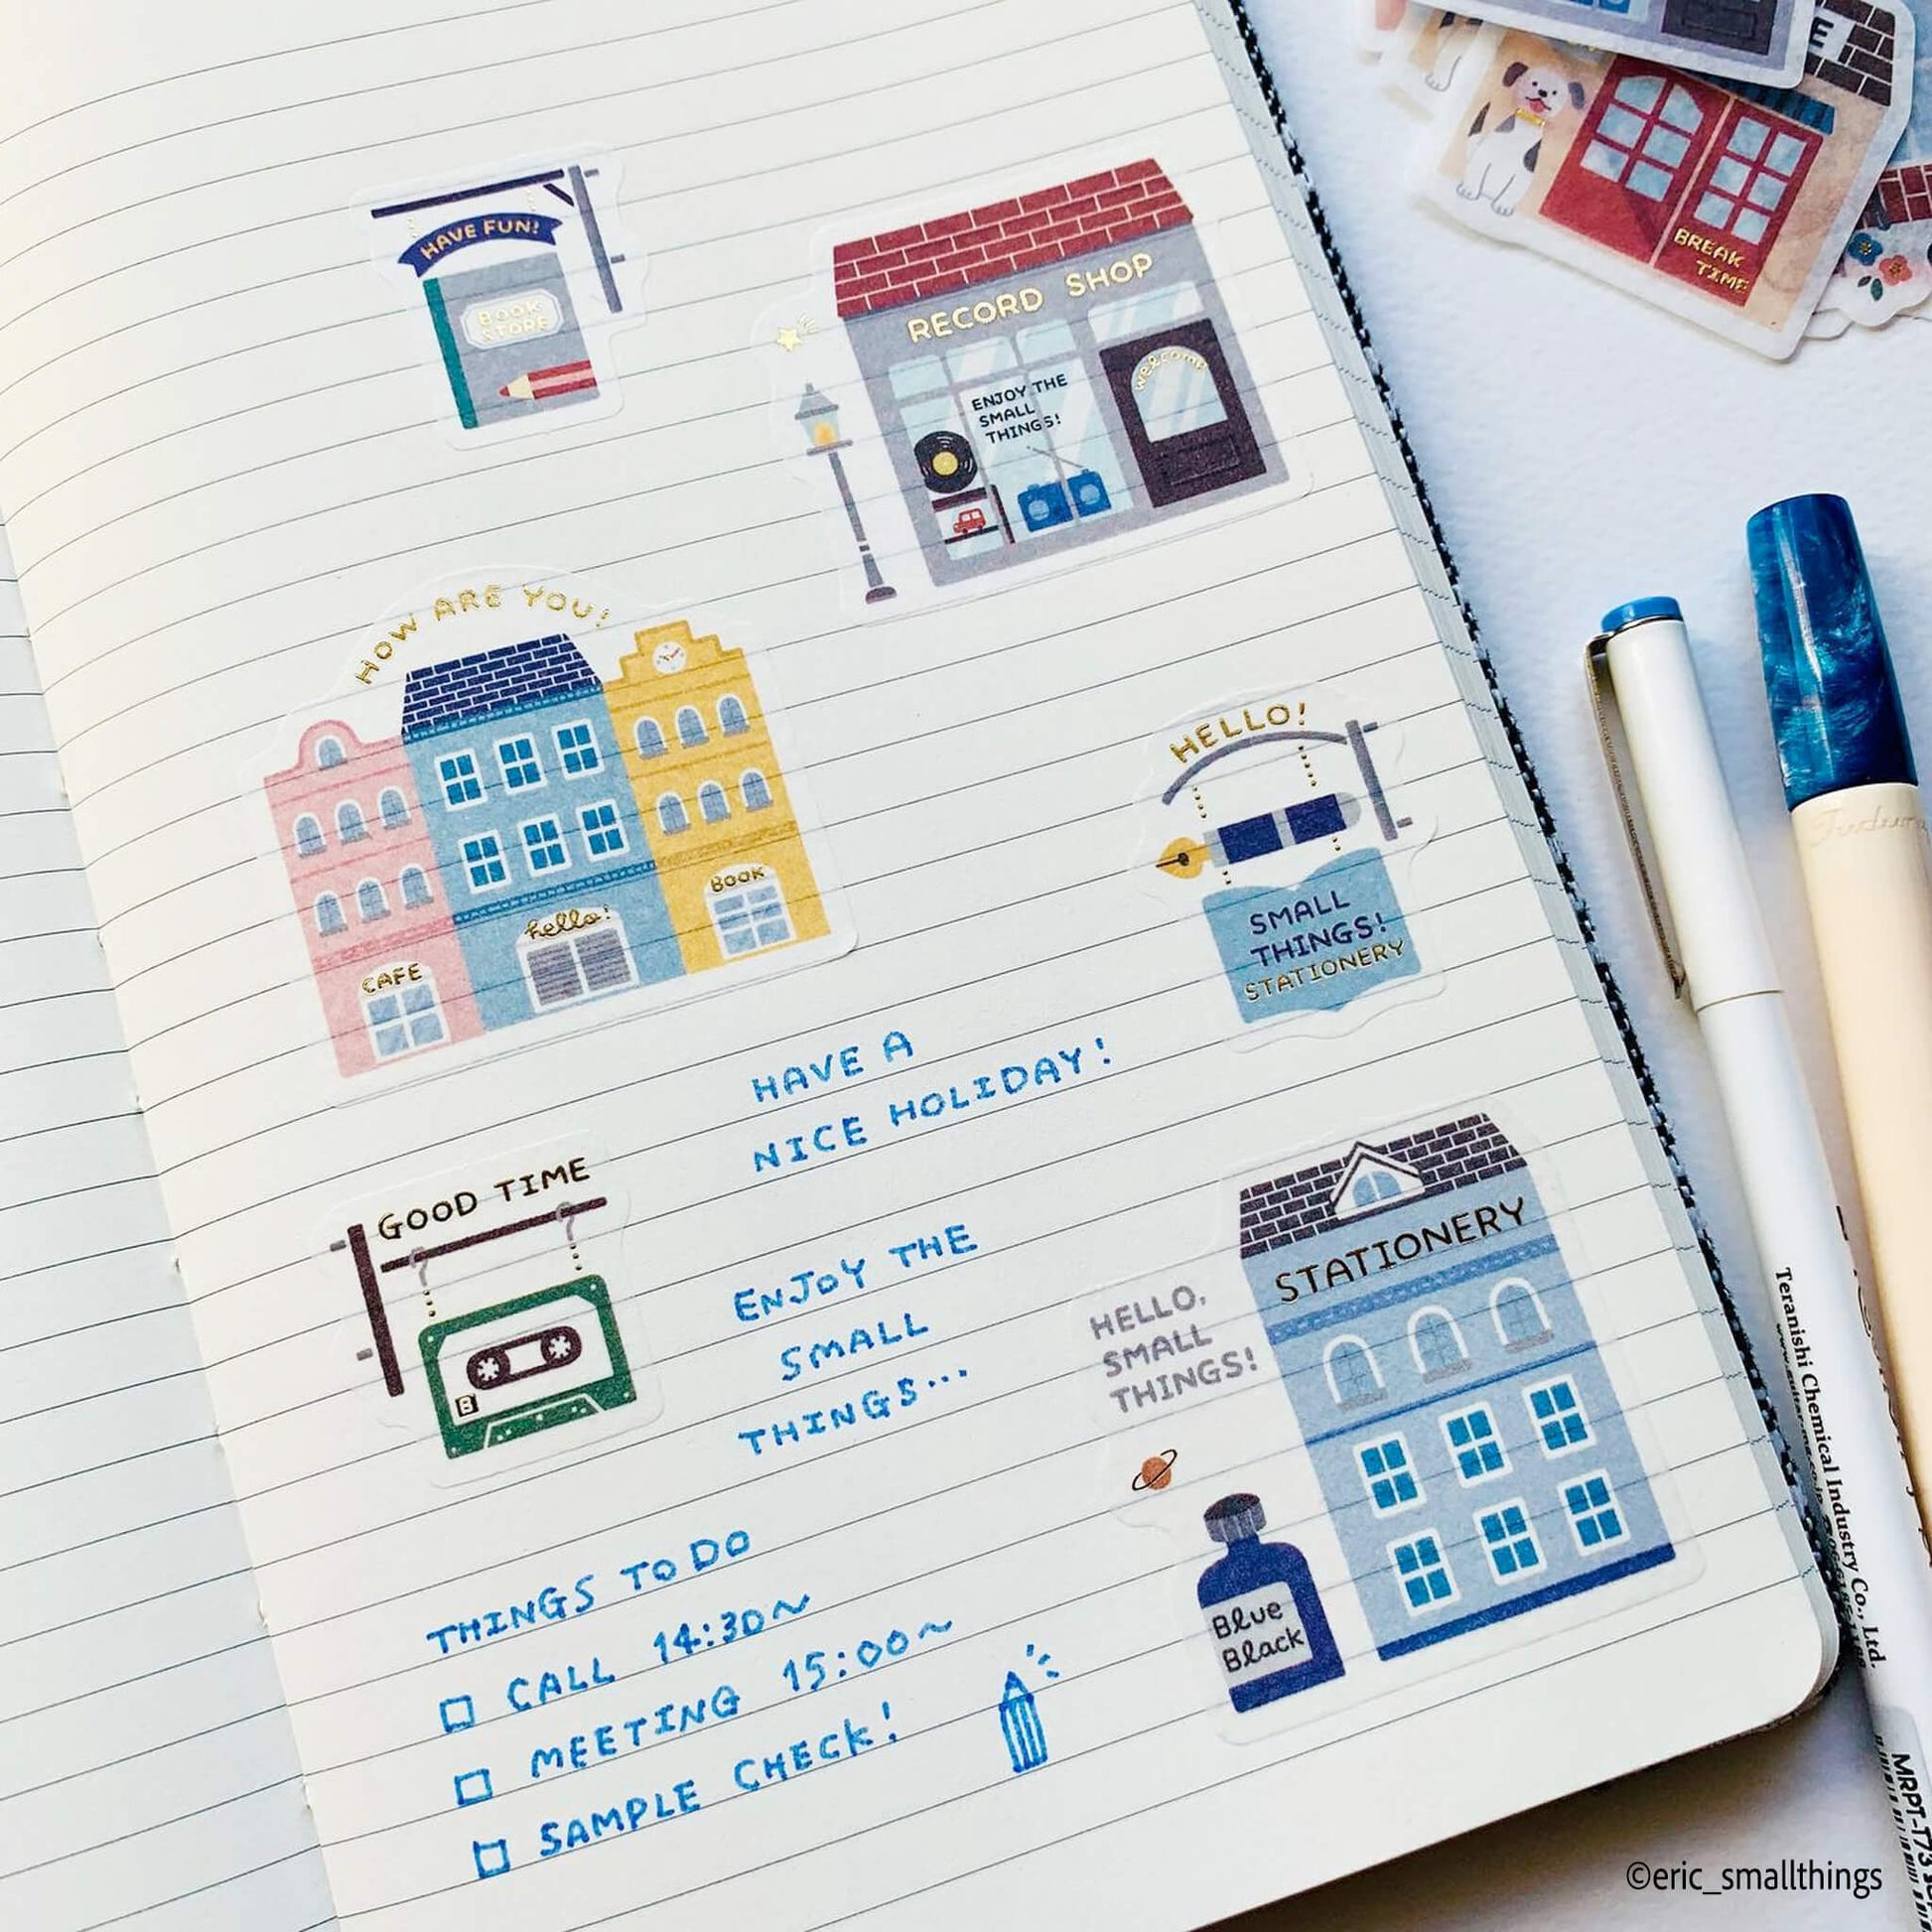 HAVE FUN!
BOOK
STORE
RECORD SHOP
welcome
ENJOY THE
SMALL
THINGS!
BREAK
TIME
HOW ARE YOU!
CAFE
hello!
BOOK
HELLO!
SMALL
THINGS!
STATIONERY
HAVE A
NICE HOLIDAY!
GOOD TIME
B
ENJOY THE
SMALL
THINGS...
STATIONERY
HELLO,
SMALL
THINGS!
Blue
Black
THINGS TO DO
□ CALL 14:30~
□ MEETING 15:00~
□ SAMPLE CHECK!
Teranishi Chemical Industry Co., Ltd.
©eric_smallthings